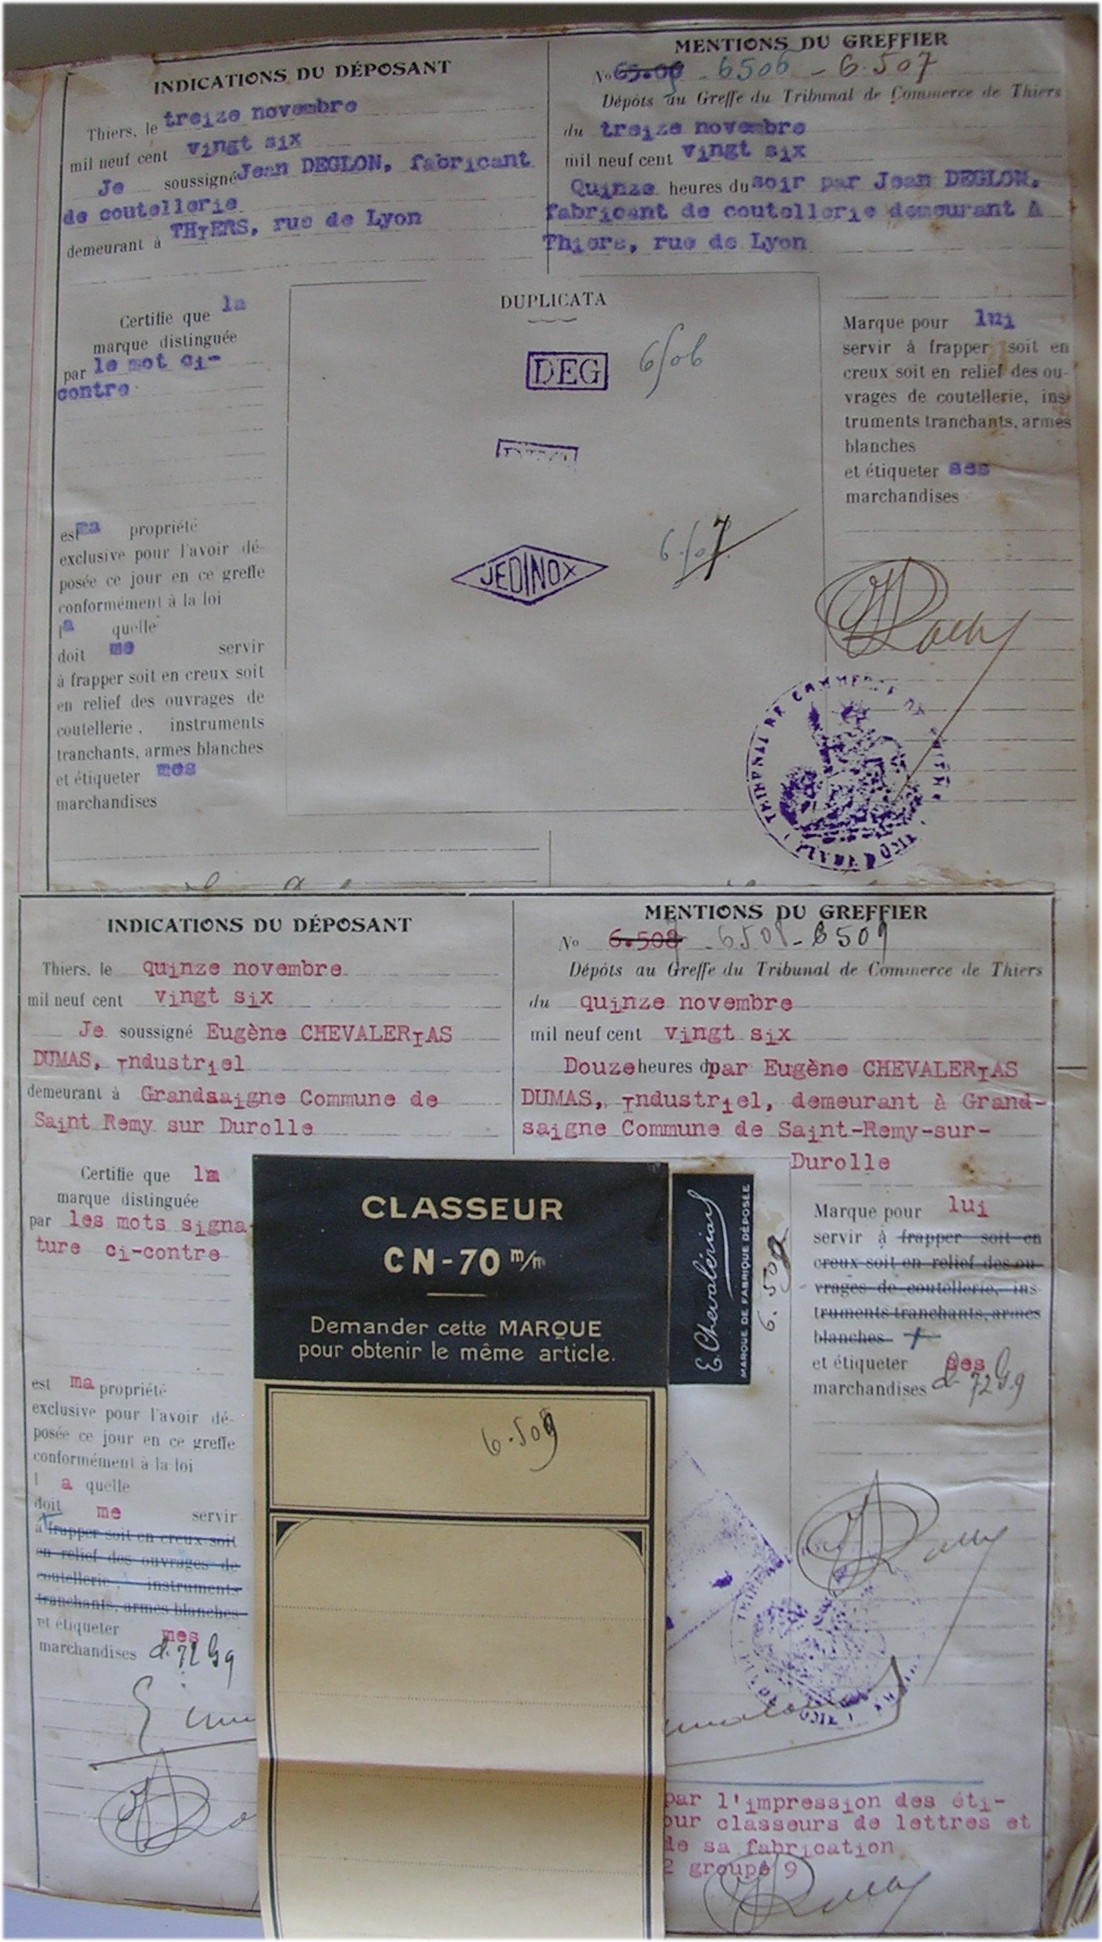 INDICATIONS DU DÉPOSANT
Thiers, le treize novembre
mil neuf cent vingt six
Je soussigné Jean DEGLON, fabricant
de coutellerie
demeurant à THIERS, rue de Lyon
MENTIONS DU GREFFIER
No 65.06 - 6506 - 6.507
Dépôts au Greffe du Tribunal de Commerce de Thiers
du treize novembre
mil neuf cent vingt six
Quinze heures du soir par Jean DEGLON,
fabricant de coutellerie demeurant à
Thiers, rue de Lyon
Certifie que la
marque distinguée
par le mot ci-
contre
est ma propriété
exclusive pour l'avoir dé-
posée ce jour en ce greffe
conformément à la loi
la quelle
doit me servir
à frapper soit en creux soit
en relief des ouvrages de
coutellerie, instruments
tranchants, armes blanches
et étiqueter mes
marchandises
DUPLICATA
DEG 6506
JEDINOX 6.507
Marque pour lui
servir à frapper soit en
creux soit en relief des ou-
vrages de coutellerie, ins-
truments tranchants, armes
blanches
et étiqueter ses
marchandises
TRIBUNAL DE COMMERCE DE THIERS
INDICATIONS DU DÉPOSANT
Thiers, le quinze novembre
mil neuf cent vingt six
Je soussigné Eugène CHEVALERIAS
DUMAS, Industriel
demeurant à Grandsaigne Commune de
Saint Remy sur Durolle
MENTIONS DU GREFFIER
No 6.508 - 6508 - 6509
Dépôts au Greffe du Tribunal de Commerce de Thiers
du quinze novembre
mil neuf cent vingt six
Douze heures d par Eugène CHEVALERIAS
DUMAS, Industriel, demeurant à Grand-
saigne Commune de Saint-Remy-sur-
Durolle
Certifie que la
marque distinguée
par les mots signa
ture ci-contre
est ma propriété
exclusive pour l'avoir dé-
posée ce jour en ce greffe
conformément à la loi
l a quelle
doit me servir
à frapper soit en creux soit
en relief des ouvrages de
coutellerie, instruments
tranchants, armes blanches
et étiqueter mes
marchandises cl. 72 G 9
CLASSEUR
CN-70 m/m
Demander cette MARQUE
pour obtenir le même article.
6.509
E. Chevalérias
MARQUE DE FABRIQUE DÉPOSÉE
Marque pour lui
servir à frapper soit en
creux soit en relief des ou-
vrages de coutellerie, ins-
truments tranchants, armes
blanches
et étiqueter ses
marchandises cl. 72 G. 9
par l'impression des éti-
our classeurs de lettres et
de sa fabrication
2 groupe 9